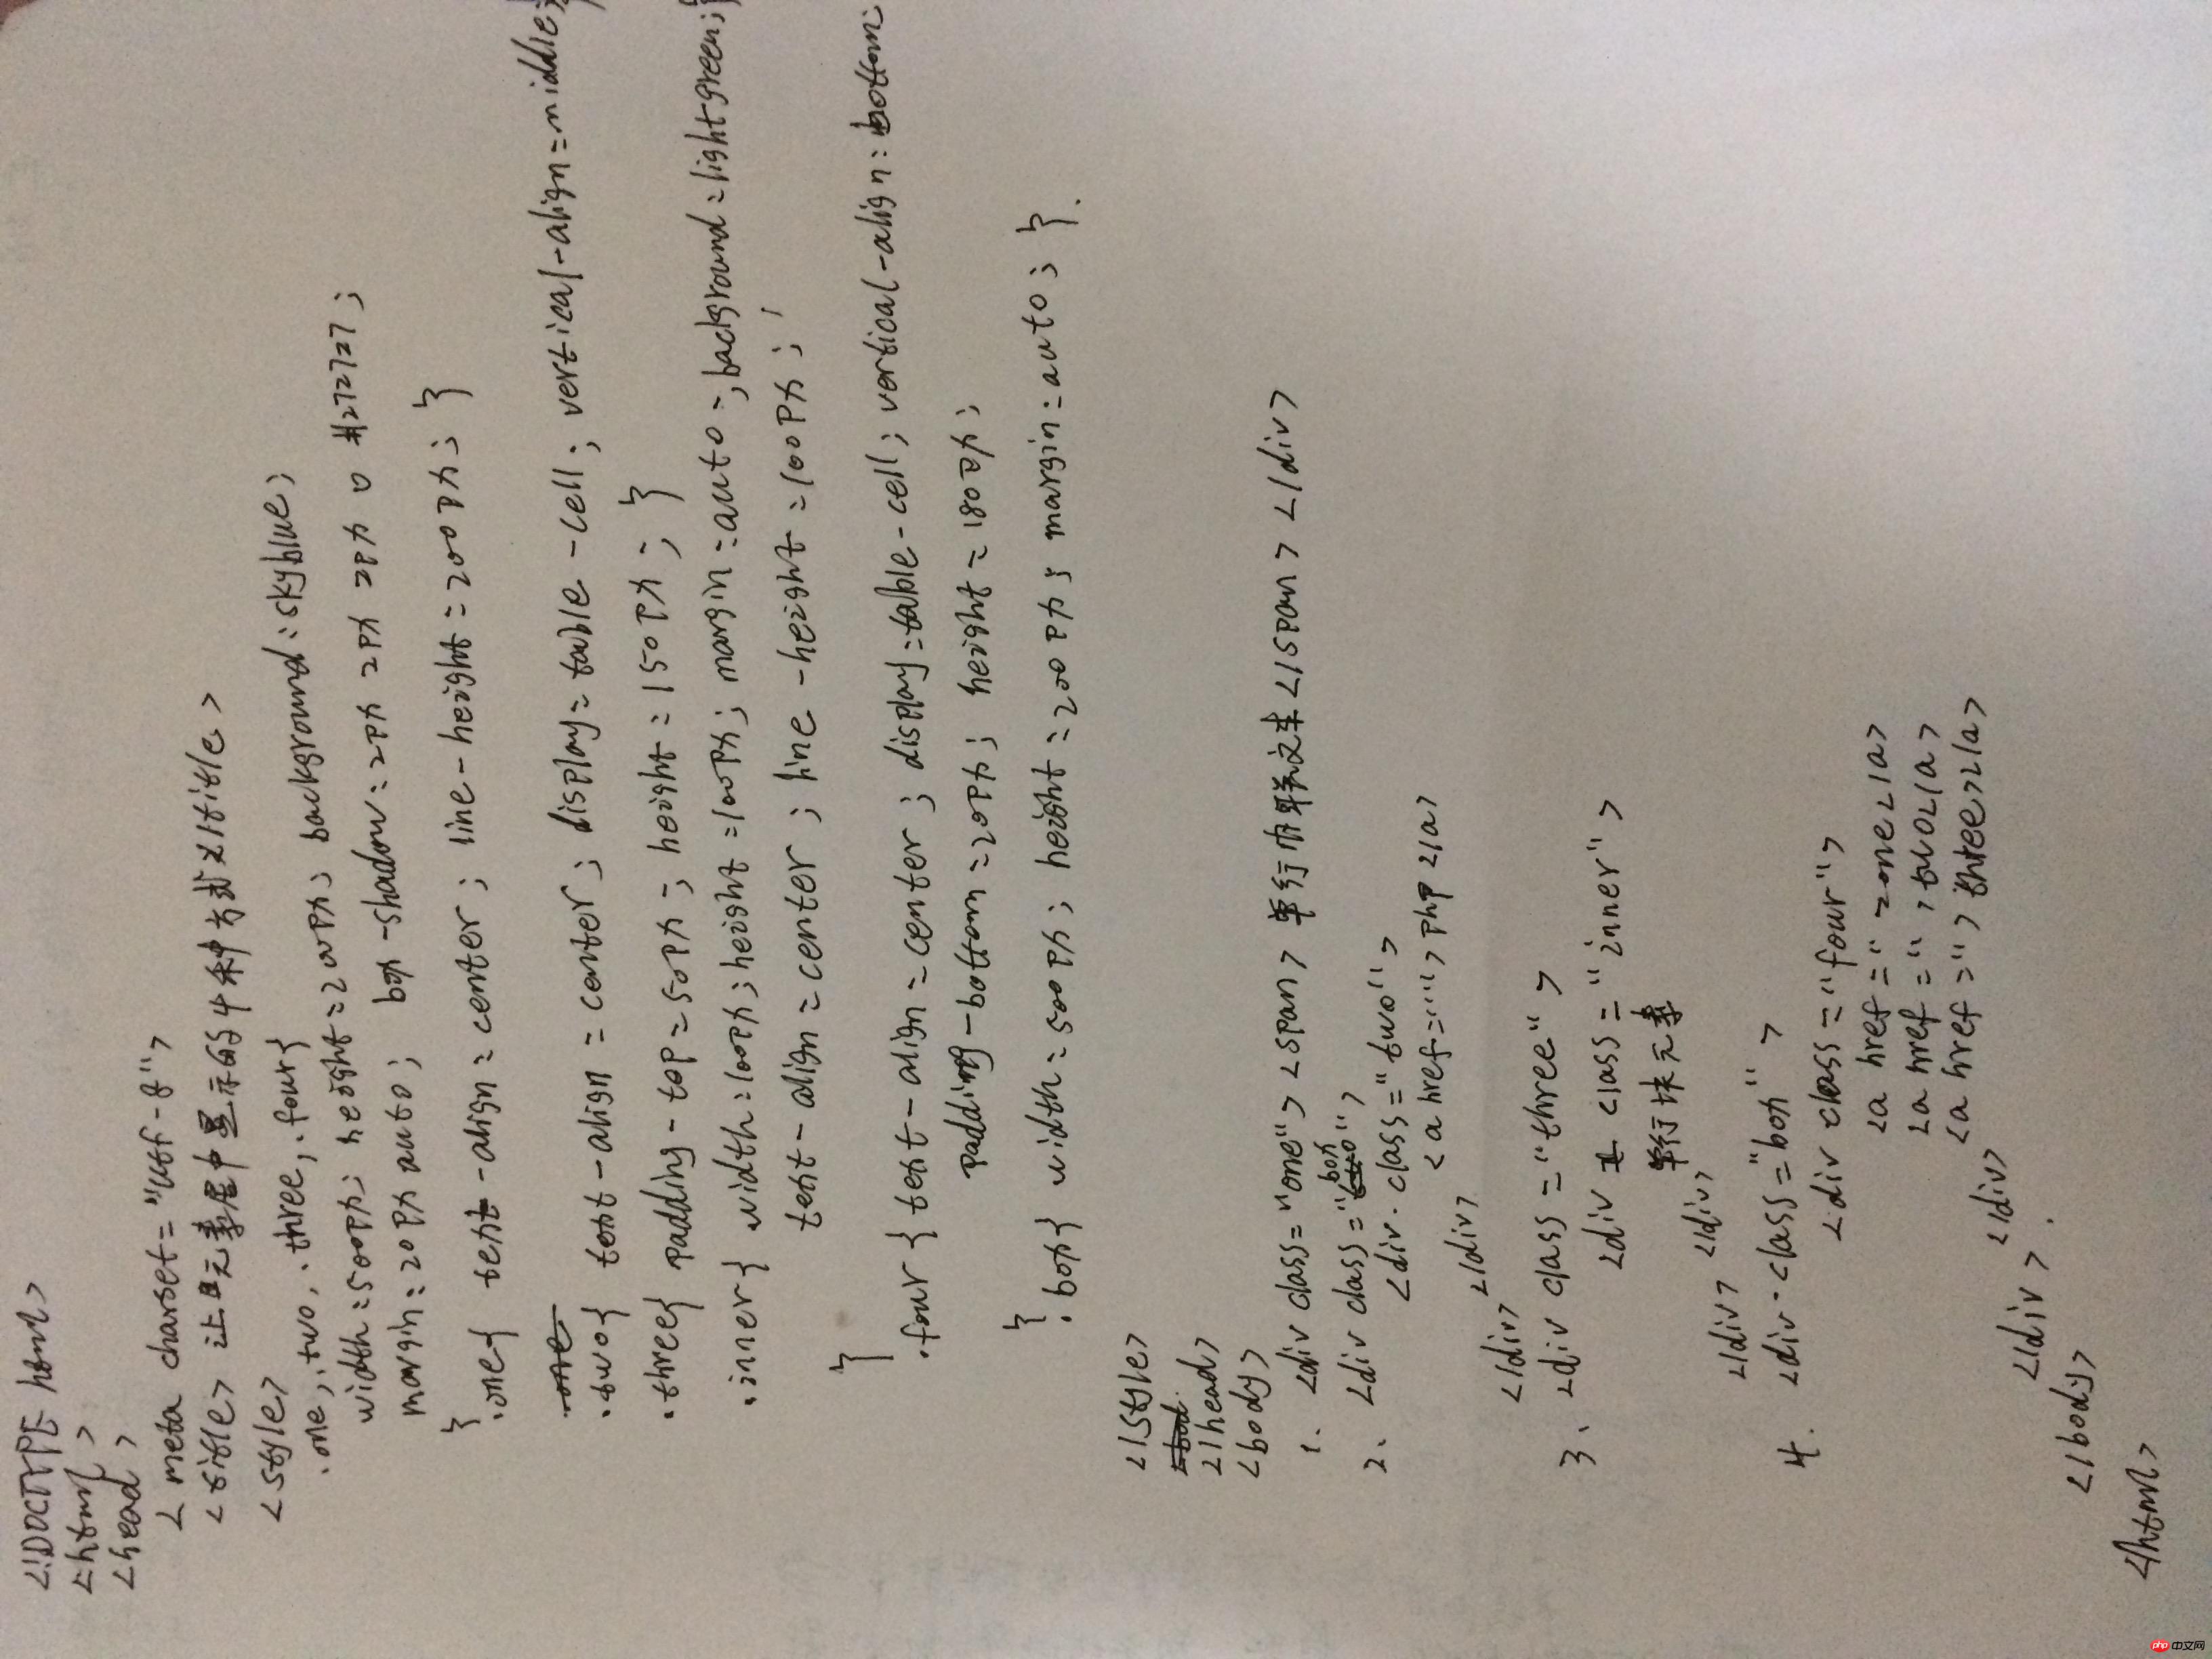 <!DOCTYPE html>
<html>
<head>
<meta charset="utf-8">
<title>让元素居中显示的4种方式</title>
<style>
.one,.two,.three,.four{
width:500px; height=200px; background:skyblue;
margin:20px auto; box-shadow:2px 2px 2px 0 #272727;
}
.one{ text-align=center; line-height=200px; }
.one
.two{ text-align=center; display=table-cell; vertical-align=middle;}
.three{ padding-top=50px; height=150px; }
.inner{ width=100px; height=100px; margin=auto; background=lightgreen;
text-align=center; line-height=100px;
}
.four{ text-align=center; display=table-cell; vertical-align:bottom;
padding-bottom=20px; height=180px;
}
.box{ width=500px; height=200px; margin=auto; }.
</style>
</head>
<body>
1. <div class="one"><span>单行内联文本</span></div>
2. <div class="box">
<div class="two">
<a href="">php</a>
</div>
</div>
3. <div class="three">
<div class="inner">
单行块元素
</div>
</div>
4. <div class="box">
<div class="four">
<a href="">one</a>
<a href="">two</a>
<a href="">three</a>
</div>
</div>.
</body>
</html>
php 中文网